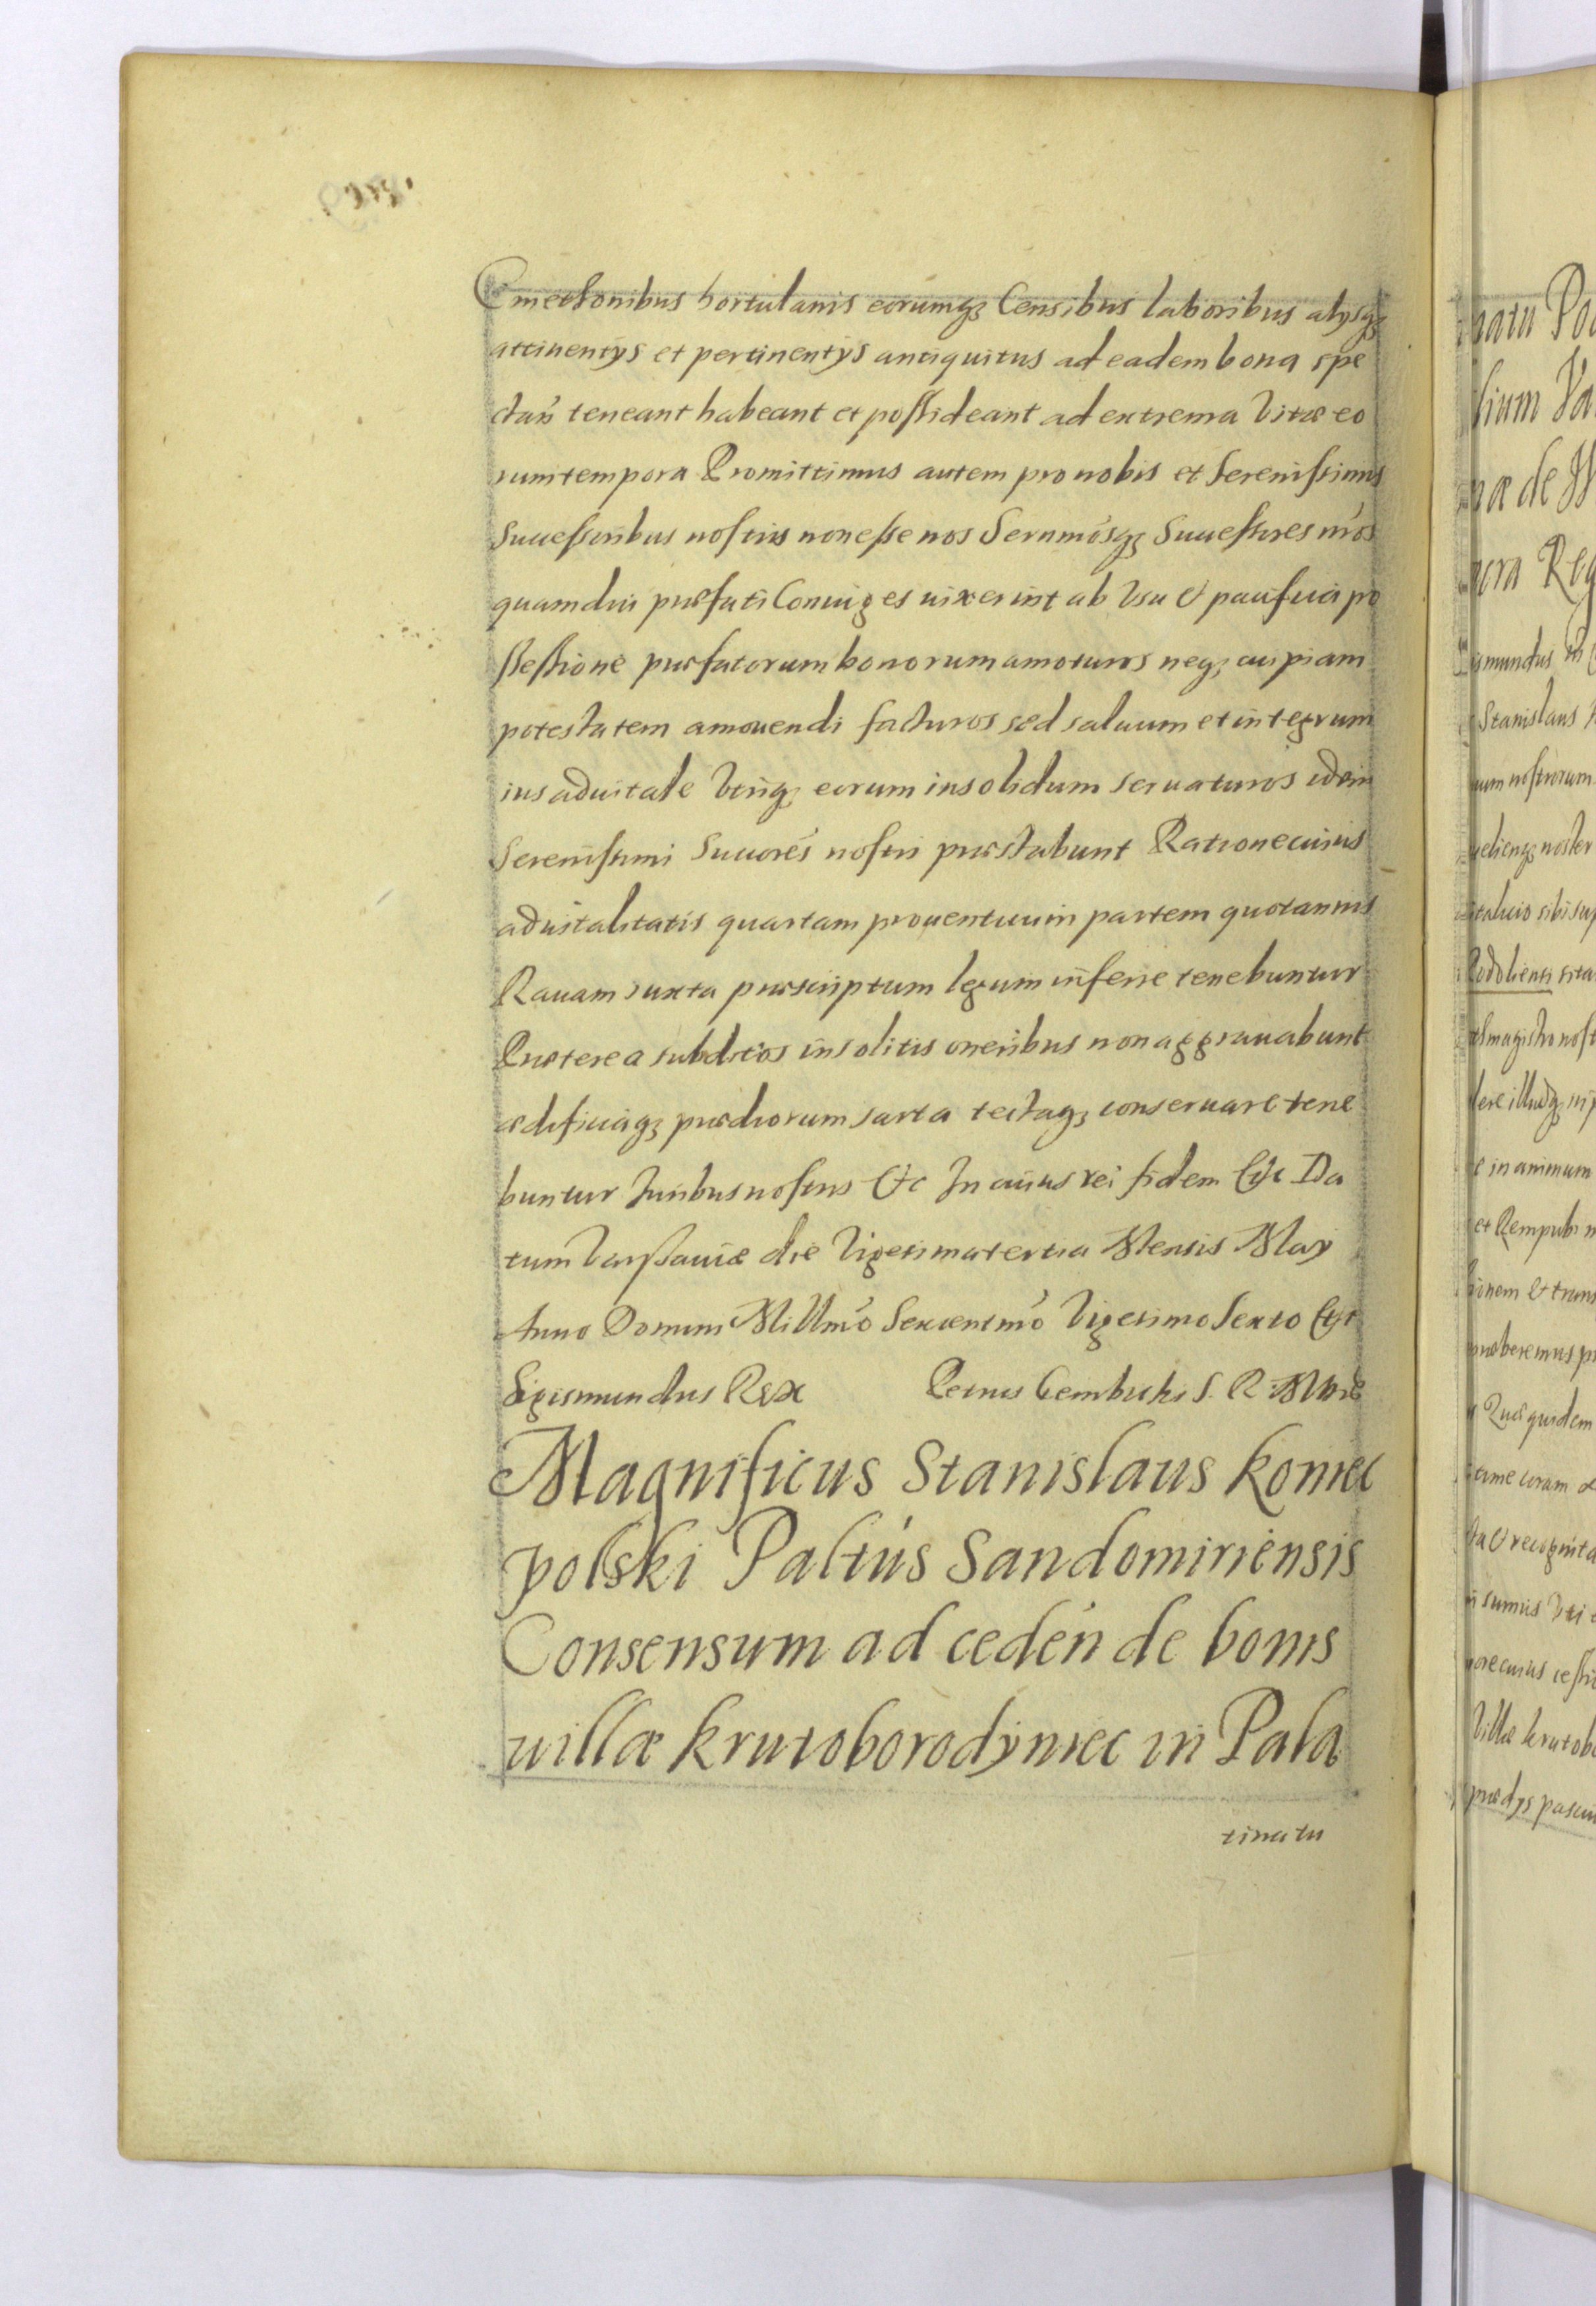 Cmethonibus hortulanis eorumq₃ Censibus laboribus alysq₃
attinentys et pertinentys antiquitus ad eadem bona spe
ctan̄ teneant habeant et possideant ad extrema Vitæ eo
rum tempora Promittimus autem pro nobis et Serenissimis
Successoribus nostris non esse nos Sernmósq₃ Successores nr̄os
quamdiu præfati Coniuges uixerint ab Vsu & pacifica po
ssessione præfatorum bonorum amoturos neq₃ cuipiam
potestatem amouendi facturos sed saluum et integrum
ius aduitale Vtriq₃ eorum insolidum seruaturos idem
Serenissimi Succorés nostri præstabunt Ratione cuius
aduitalitatis quartam prouentuum partem quotannis
Rauam iuxta præscriptum legum inferre tenebuntur
Præterea subditos insolitis oneribus non aggrauabunt
ædificiaq₃ prædiorum sarta tectaq₃ conseruare tene
buntur Iuribus nostris &c In cuius rei fidem Etc Da
tum Varssauiæ die Vigesima tertia Mensis May
Anno Domini Millmō Sexcentmō Vigesimo Sexto Etc
Sigismundus Rex Petrus Gembicki S. R. Mtris
Magnificus Stanislaus Koniec
polski Paltiús Sandomiriensis
Consensum ad cedén de bonis
uillæ Krutoborodyniec in Pala
tinatu
natu Pod
lium Pa
næ de W
pora Reg
ismundus in
Stanislaus
um nostrorum
uelienq₃ noster
italicio sibi sup
Podoliensi sita
magistro nost
lere illudq₃
e in animum
et Rempub
ionem & trans
præberemus
Quæ quidem
iame coram
ta & recognita
sumus Vti
pore cuius
Villæ krutob
prædys pascu